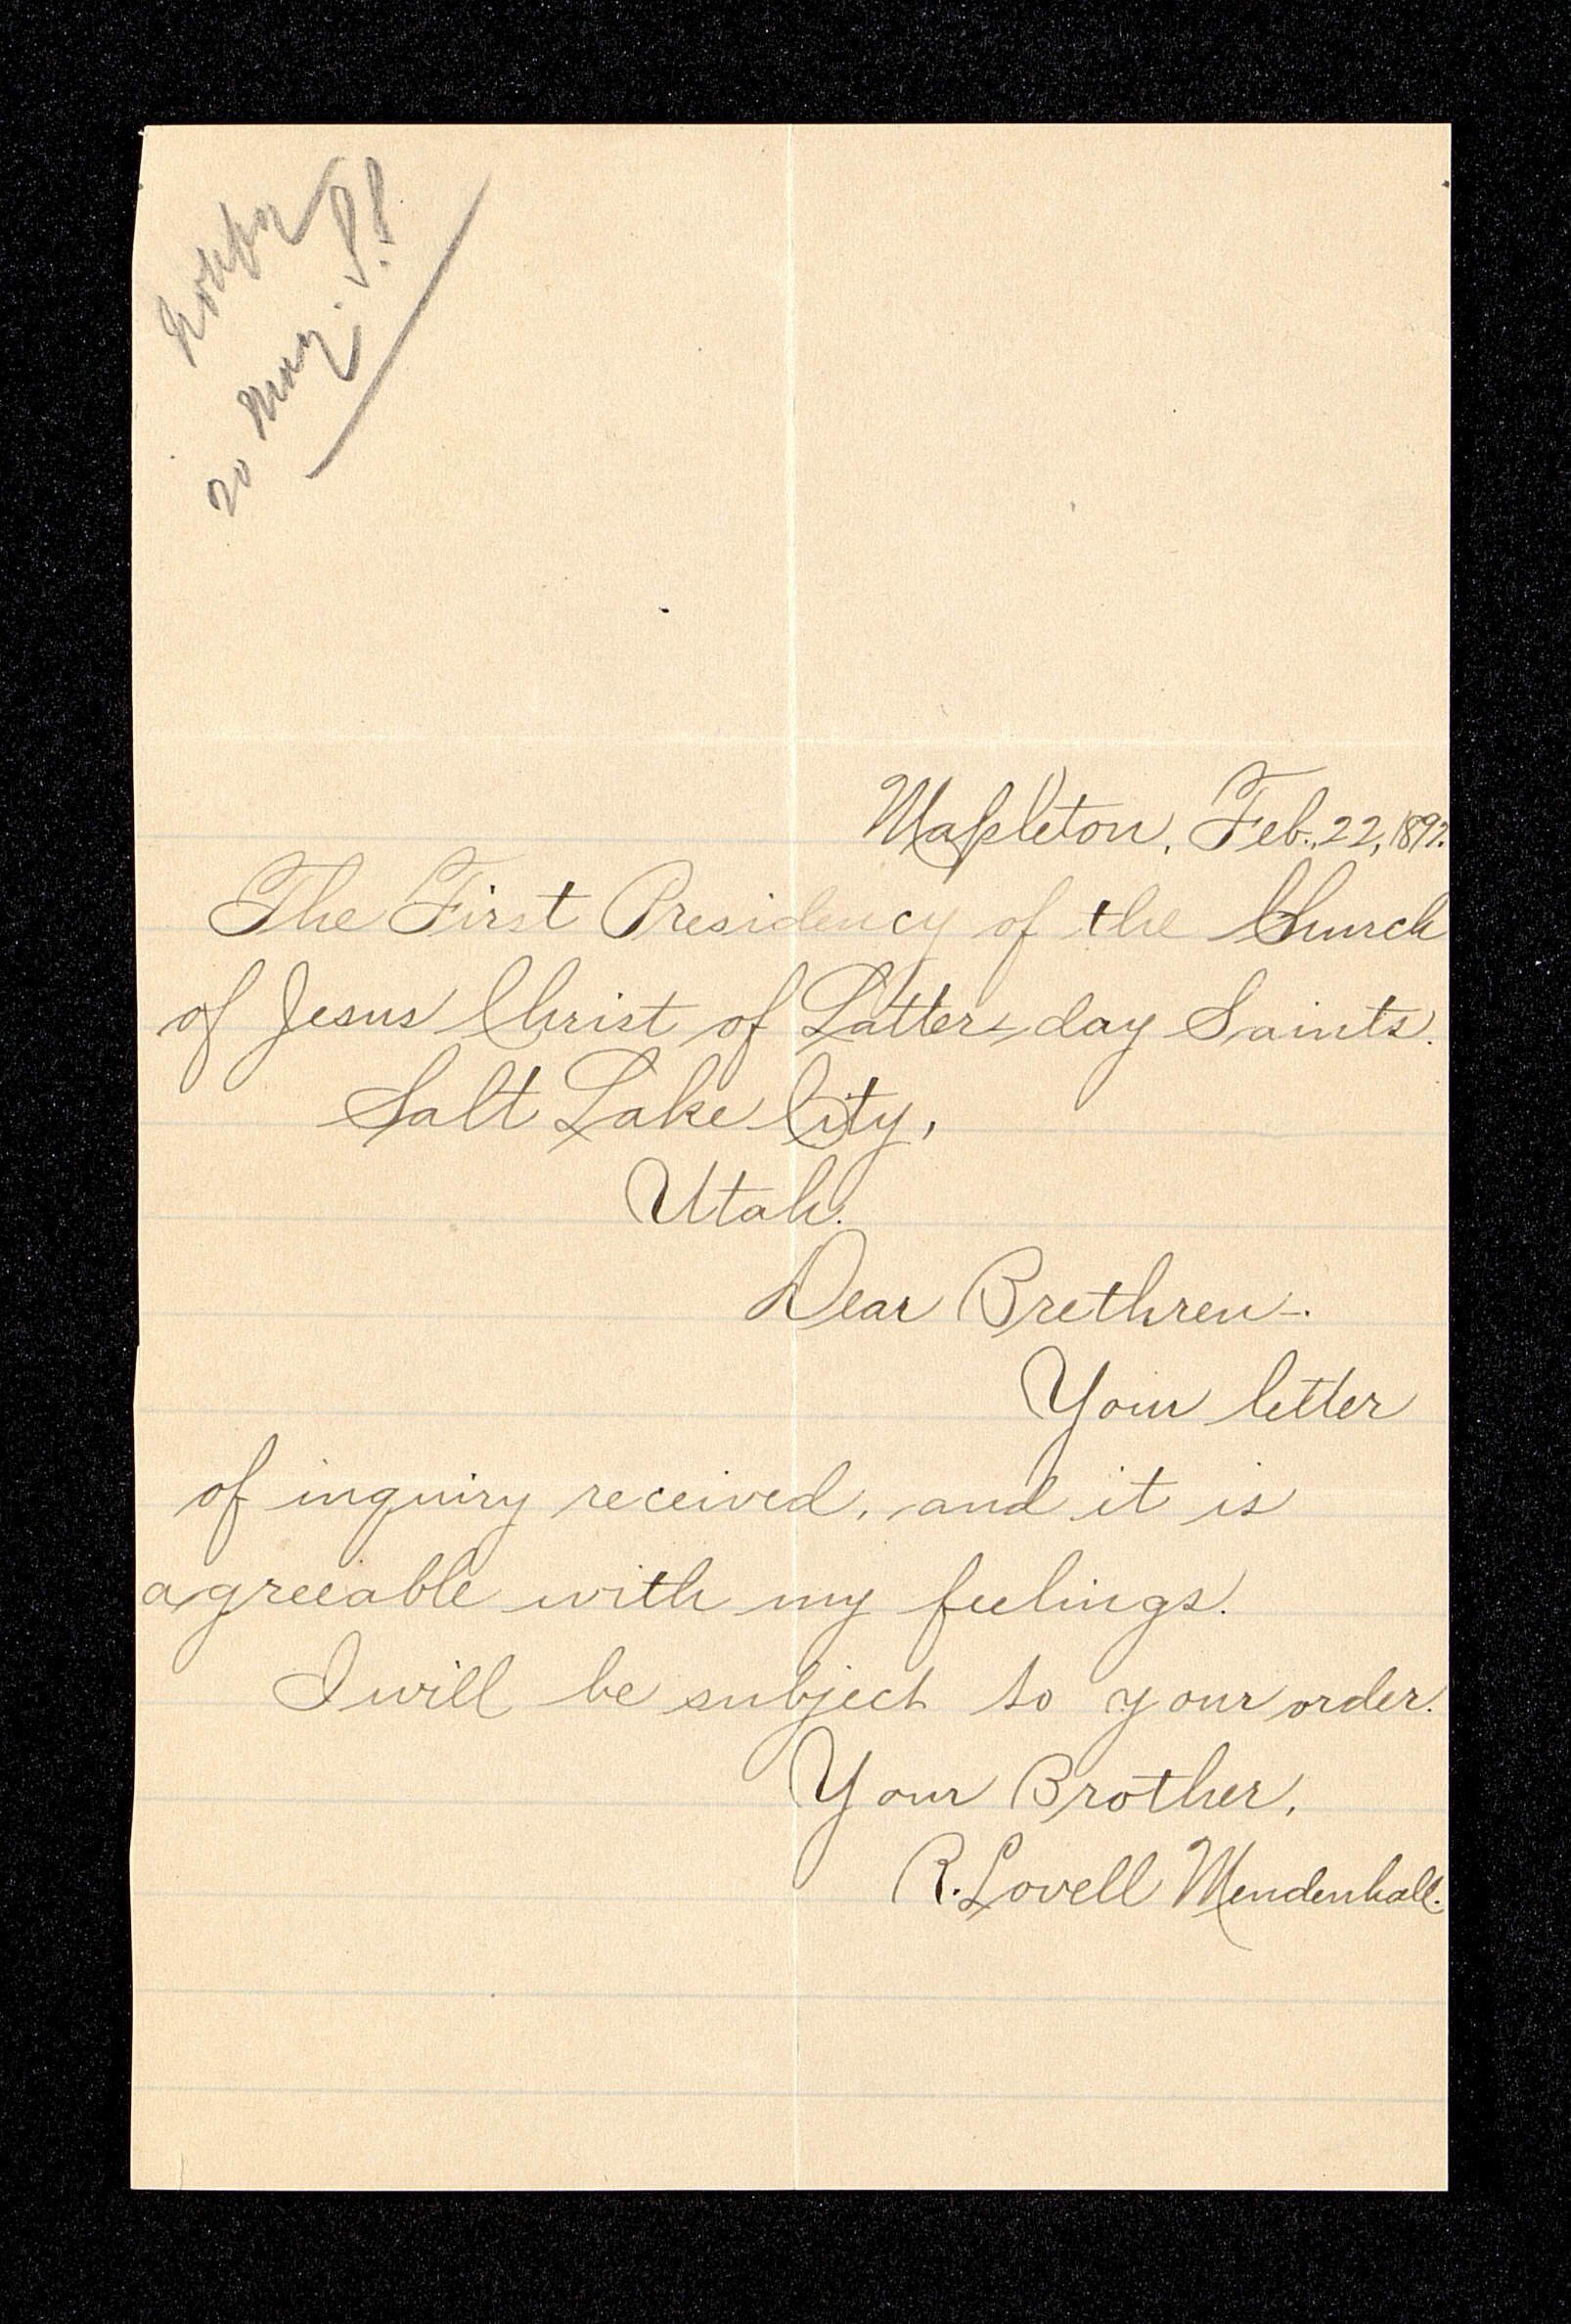 20 May.
Mapleton, Feb., 22, 1892.
The First Presidency of the Church
of Jesus Christ of Latter-day Saints.
Salt Lake City,
Utah.
Dear Brethren-.
Your letter
of inquiry received, and it is
agreeable with my feelings.
I will be subject to your order.
Your Brother,
R. Lovell Mendenhall.